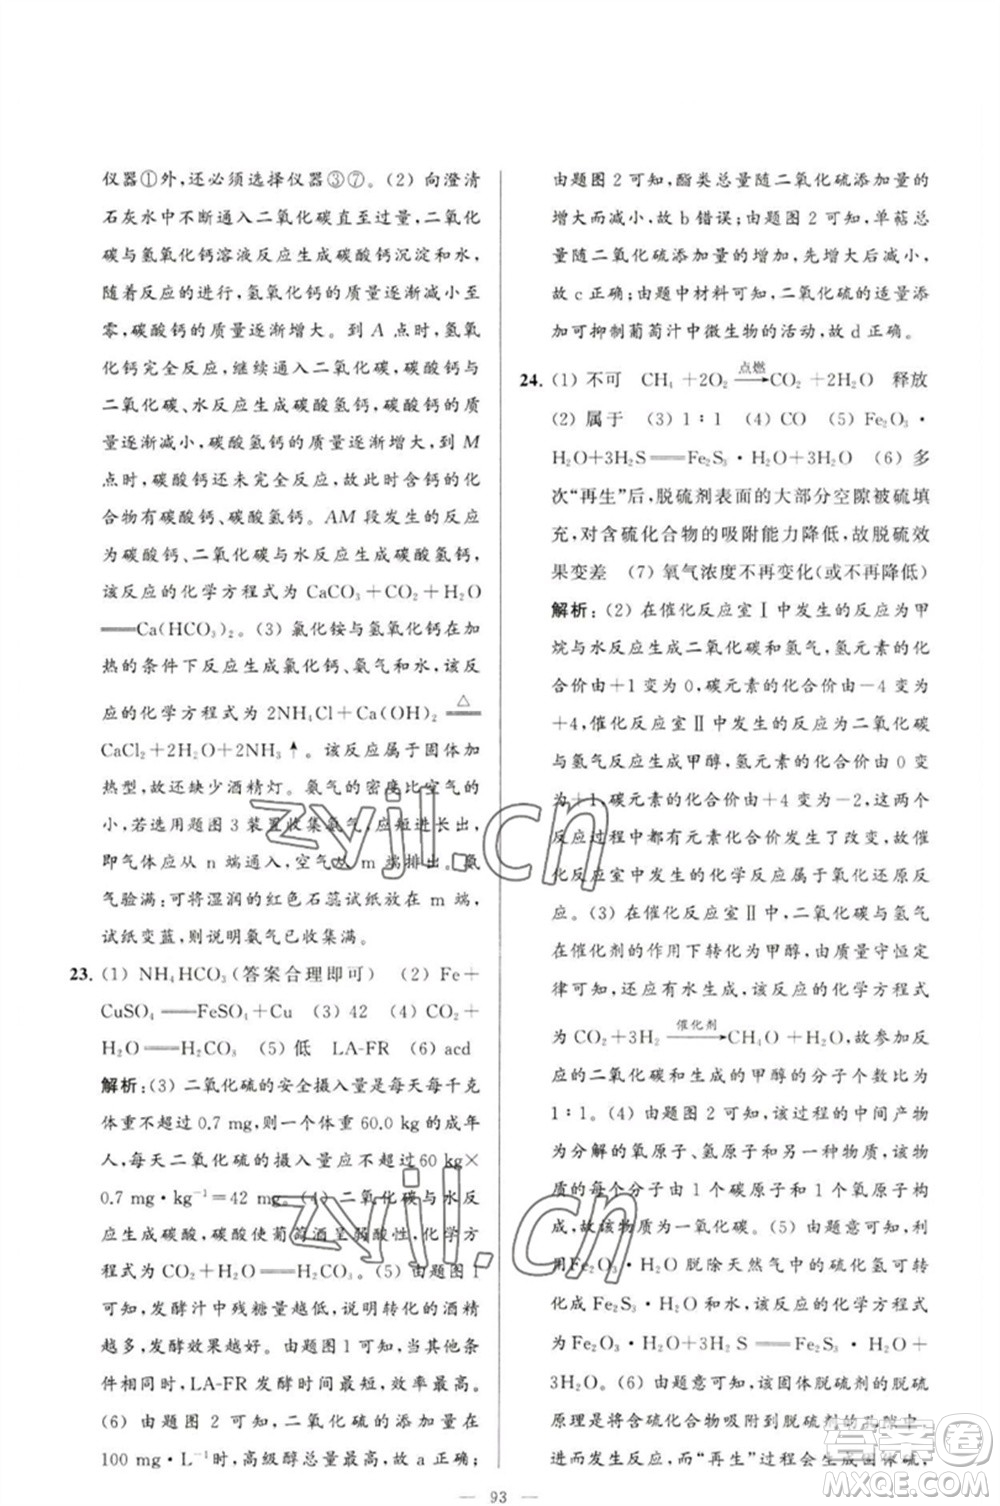 仪器①外,还必须选择仪器③⑦。(2) 向澄清
石灰水中不断通入二氧化碳直至过量,二氧化
碳与氢氧化钙溶液反应生成碳酸钙沉淀和水,
随着反应的进行,氢氧化钙的质量逐渐减小至
零,碳酸钙的质量逐渐增大。到 A 点时,氢氧
化钙完全反应,继续通入二氧化碳,碳酸钙、二
氧化碳、水反应生成碳酸氢钙,碳酸钙的质量
逐渐减小,碳酸氢钙的质量逐渐增大,到 M
点时,碳酸钙还未完全反应,故此时含钙的化
合物有碳酸钙、碳酸氢钙。AM 段发生的反应
为碳酸钙、二氧化碳与水反应生成碳酸氢钙,
该反应的化学方程式为 CaCO₃+CO₂+H₂O
══Ca(HCO₃)₂。(3) 氯化铵与氢氧化钙在加
热的条件下反应生成氯化钙、氨气和水,该反
应的化学方程式为 2NH₄Cl+Ca(OH)₂ ══△
CaCl₂+2H₂O+2NH₃↑。该反应属于固体加
热型,故还缺少酒精灯。氨气的密度比空气的
小,若选用题图 3 装置收集氨气,应短进长出,
即气体应从 n 端通入,空气从 m 端排出。氨
气验满:可将湿润的红色石蕊试纸放在 m 端,
试纸变蓝,则说明氨气已收集满。
23. (1) NH₄HCO₃(答案合理即可) (2) Fe+
CuSO₄══FeSO₄+Cu (3) 42 (4) CO₂+
H₂O══H₂CO₃ (5) 低 LA-FR (6) acd
解析:(3) 二氧化硫的安全摄入量是每天每千克
体重不大于0.7 mg,则一个体重 60.0 kg的成年
人,每天二氧化硫的摄入量应不超过60 kg×
0.7 mg·kg⁻¹=42 mg。(4) 二氧化碳与水反
应生成碳酸,碳酸使葡萄酒呈弱酸性,化学方
程式为 CO₂+H₂O══H₂CO₃。(5) 由题图 1
可知,发酵汁中残糖量越低,说明转化的酒精
越多,发酵效果越好。由题图 1 可知,其他条
件相同时,LA-FR 发酵时间最短,效率最高。
(6) 由题图 2 可知,二氧化硫的添加量在
100 mg·L⁻¹时,高级醇总量最高,故 a 正确;
由题图 2 可知,酯类总量随二氧化硫添加量的
增大而减小,故 b 错误;由题图 2 可知,单萜总
量随二氧化硫添加量的增加,先增大后减小,
故 c 正确;由题中材料可知,二氧化硫的适量添
加可抑制葡萄汁中微生物的活动,故 d 正确。
24. (1) 不可 CH₄+2O₂ 点燃→ CO₂+2H₂O 释放
(2) 属于 (3) 1∶1 (4) CO (5) Fe₂O₃·
H₂O+3H₂S══Fe₂S₃·H₂O+3H₂O (6) 多
次“再生”后,脱硫剂表面的大部分空隙被硫填
充,对含硫化合物的吸附能力降低,故脱硫效
果变差 (7) 氧气浓度不再变化(或不再降低)
解析:(2) 在催化反应室Ⅰ中发生的反应为甲
烷与水反应生成二氧化碳和氢气,氢元素的化
合价由+1 变为 0,碳元素的化合价由-4 变为
+4,催化反应室Ⅱ中发生的反应为二氧化碳
与氢气反应生成甲醇,氢元素的化合价由 0 变
为+1,碳元素的化合价由+4 变为-2,这两个
反应过程中都有元素化合价发生了改变,故催
化反应室发生的化学反应属于氧化还原反
应。(3) 在催化反应室Ⅱ中,二氧化碳与氢气
在催化剂的作用下转化为甲醇,由质量守恒定
律可知,还应有水生成,该反应的化学方程式
为 CO₂+3H₂ 催化剂→ CH₄O+H₂O,故参加反
应的二氧化碳和生成的甲醇的分子个数比为
1∶1。(4) 由题图 2 可知,该过程的中间产物
为分解的氧原子、氢原子和另外一种物质,该物
质的每个分子由 1 个碳原子和 1 个氧原子构
成,故该物质为一氧化碳。(5) 由题意可知,利
用Fe₂O₃·H₂O 脱除天然气中的硫化氢可转
化成 Fe₂S₃·H₂O 和水,该反应的化学方程式
为 Fe₂O₃·H₂O+3H₂S══Fe₂S₃·H₂O+
3H₂O。(6) 由题意可知,该固体脱硫剂的脱硫
原理是将含硫化合物吸附到脱硫剂的孔隙中,
进而发生反应,而“再生”过程会生成固体硫,
— 93 —
zyjl.cn
zyjl.cn
答案圈
MXQE.COM